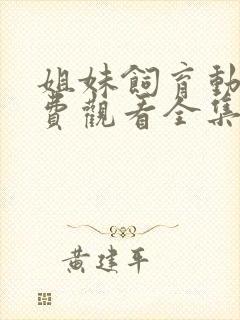 姐妹飼育動
費觀看全集
黃建平